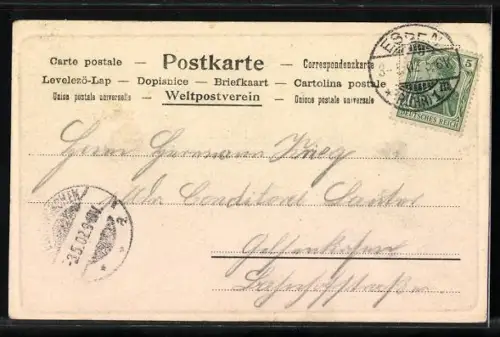 Carte postale — Postkarte — Correspondenzkarte
Levelező-Lap — Dopisnice — Briefkaart — Cartolina postale
Union postale universelle — Weltpostverein — Unione postale universale
ESSEN
(RUHR)
5
DEUTSCHES REICH
Herrn Hermann
Conditorei
-3.5.02.9-10V.
Gelsenkirchen
Bahnhofstraße